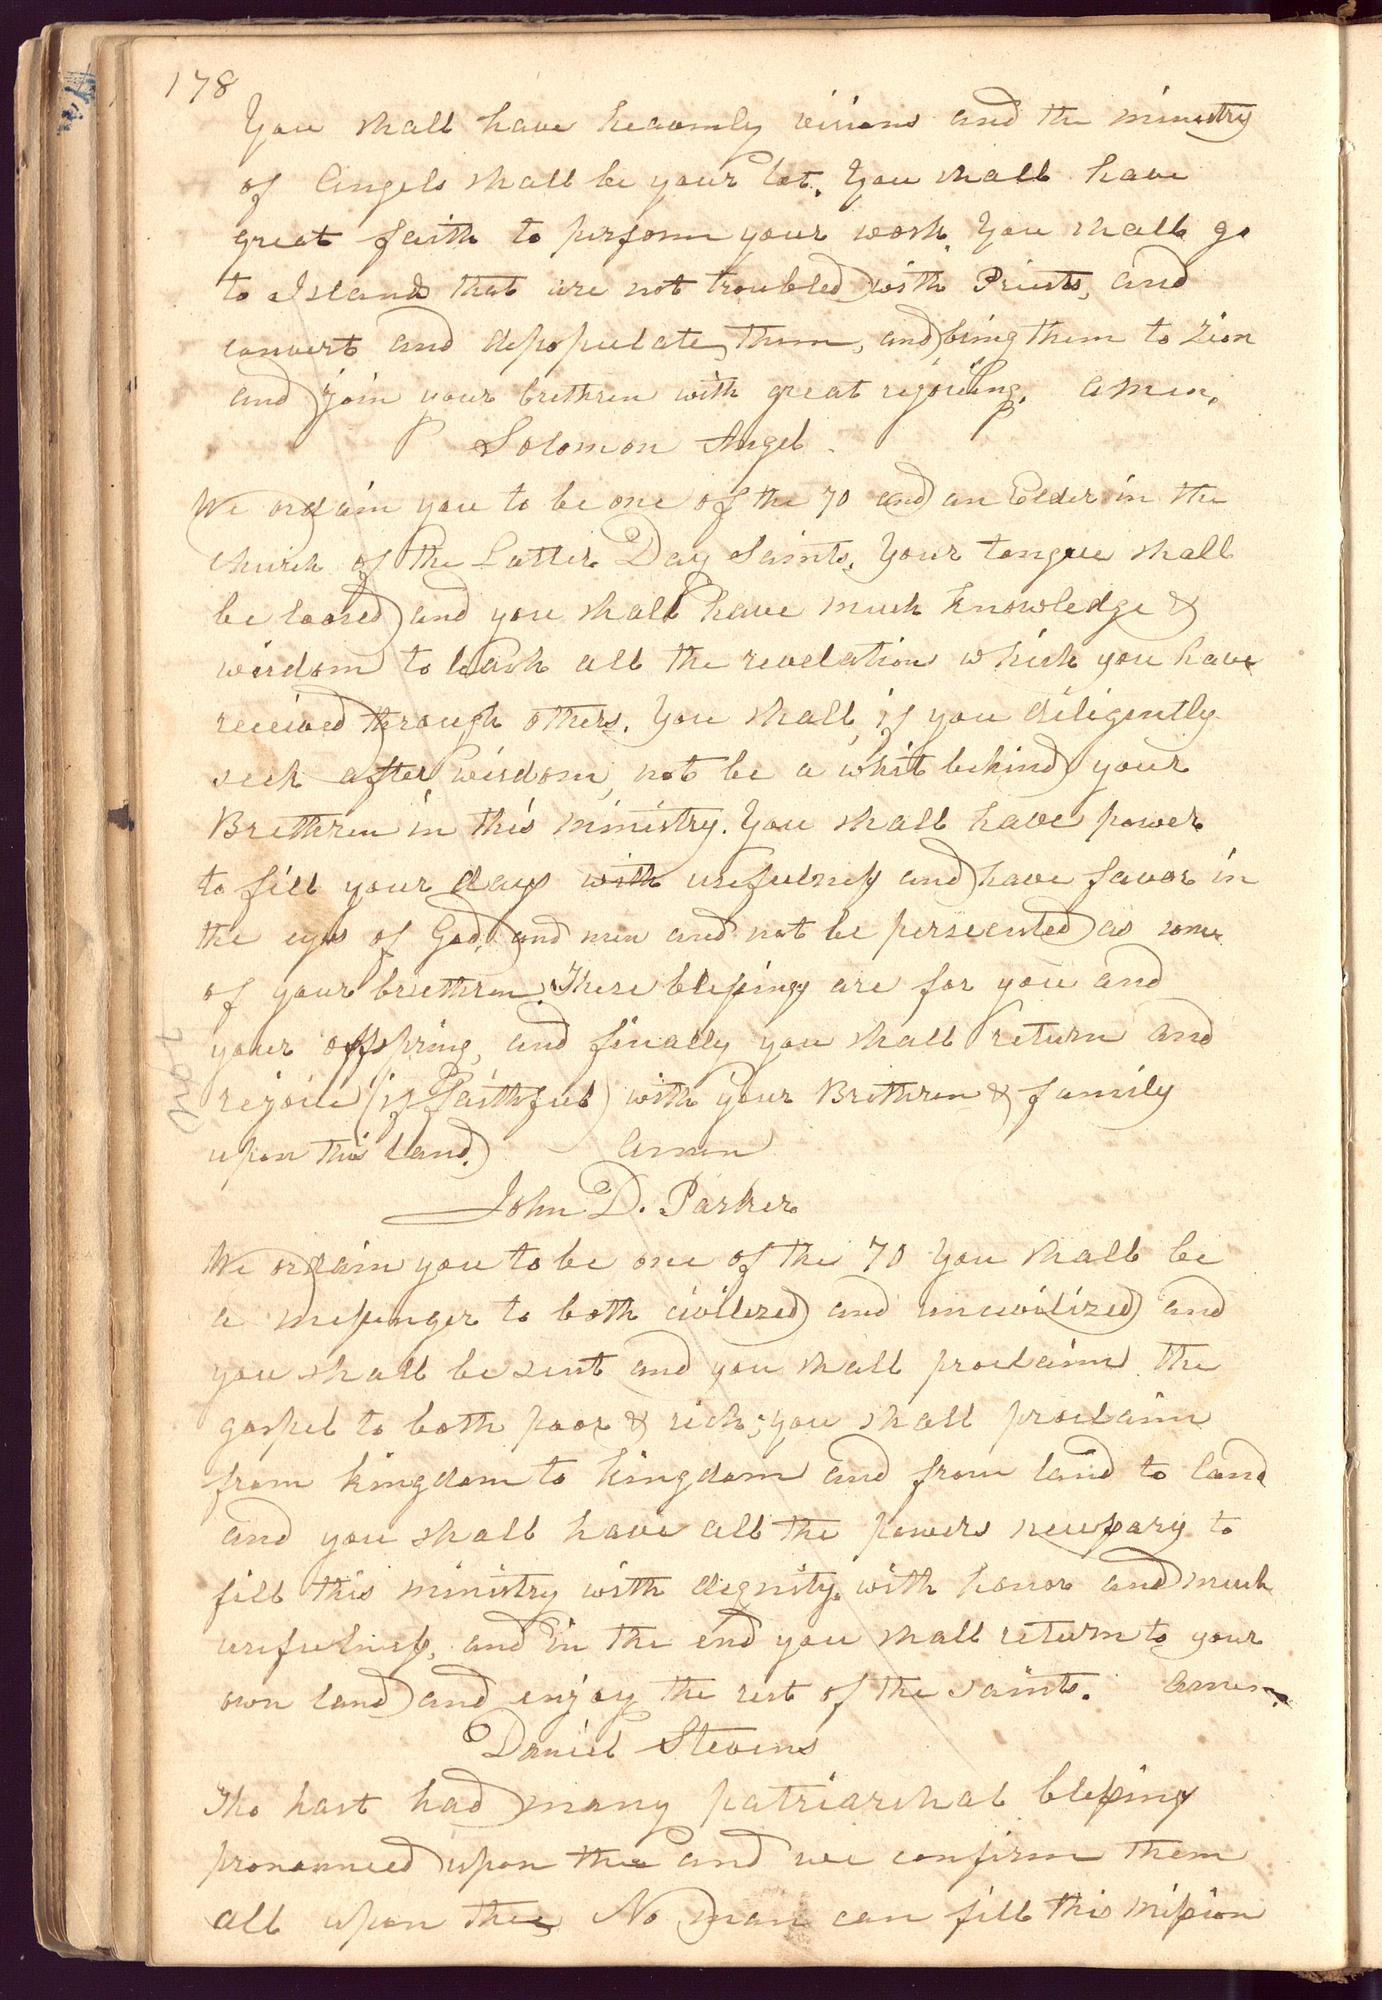 178
You shall have heavenly visions and the ministry
of Angels shall be your lot. You shall have
great faith to perform your work. You shall go
to Islands that are not troubled with Priests, and
convert and depopulate them, and bring them to Zion
and join your brethren with great rejoicing. Amen.
Solomon Angel.
We ordain you to be one of the 70 and an Elder in the
Church of the Latter Day Saints. Your tongue shall
be loosed and you shall have much knowledge &
wisdom to teach all the revelations which you have
received through others. You shall, if you diligently
seek after wisdom, not be a whit behind your
Brethren in this ministry. You shall have power
to fill your days with usefulness and have favor in
the eyes of God, and men and not be persecuted as some
of your brethren. These blessings are for you and
your offspring, and finally you shall return and
rejoice (if faithful) with your Brethren & family
upon this land. Amen
not
John D. Parker
We ordain you to be one of the 70 You shall be
a messenger to both civilized and uncivilized and
you shall be sent and you shall proclaim the
gospel to both poor & rich; you shall proclaim
from kingdom to kingdom and from land to land
and you shall have all the powers necessary to
fill this ministry with dignity, with honor and much
usefulness, and in the end you shall return to your
own land and enjoy the rest of the saints. Amen.
Daniel Stevens
Tho hast had many patriarchal blessings
pronounced upon thee and we confirm them
all upon thee No man can fill this mission